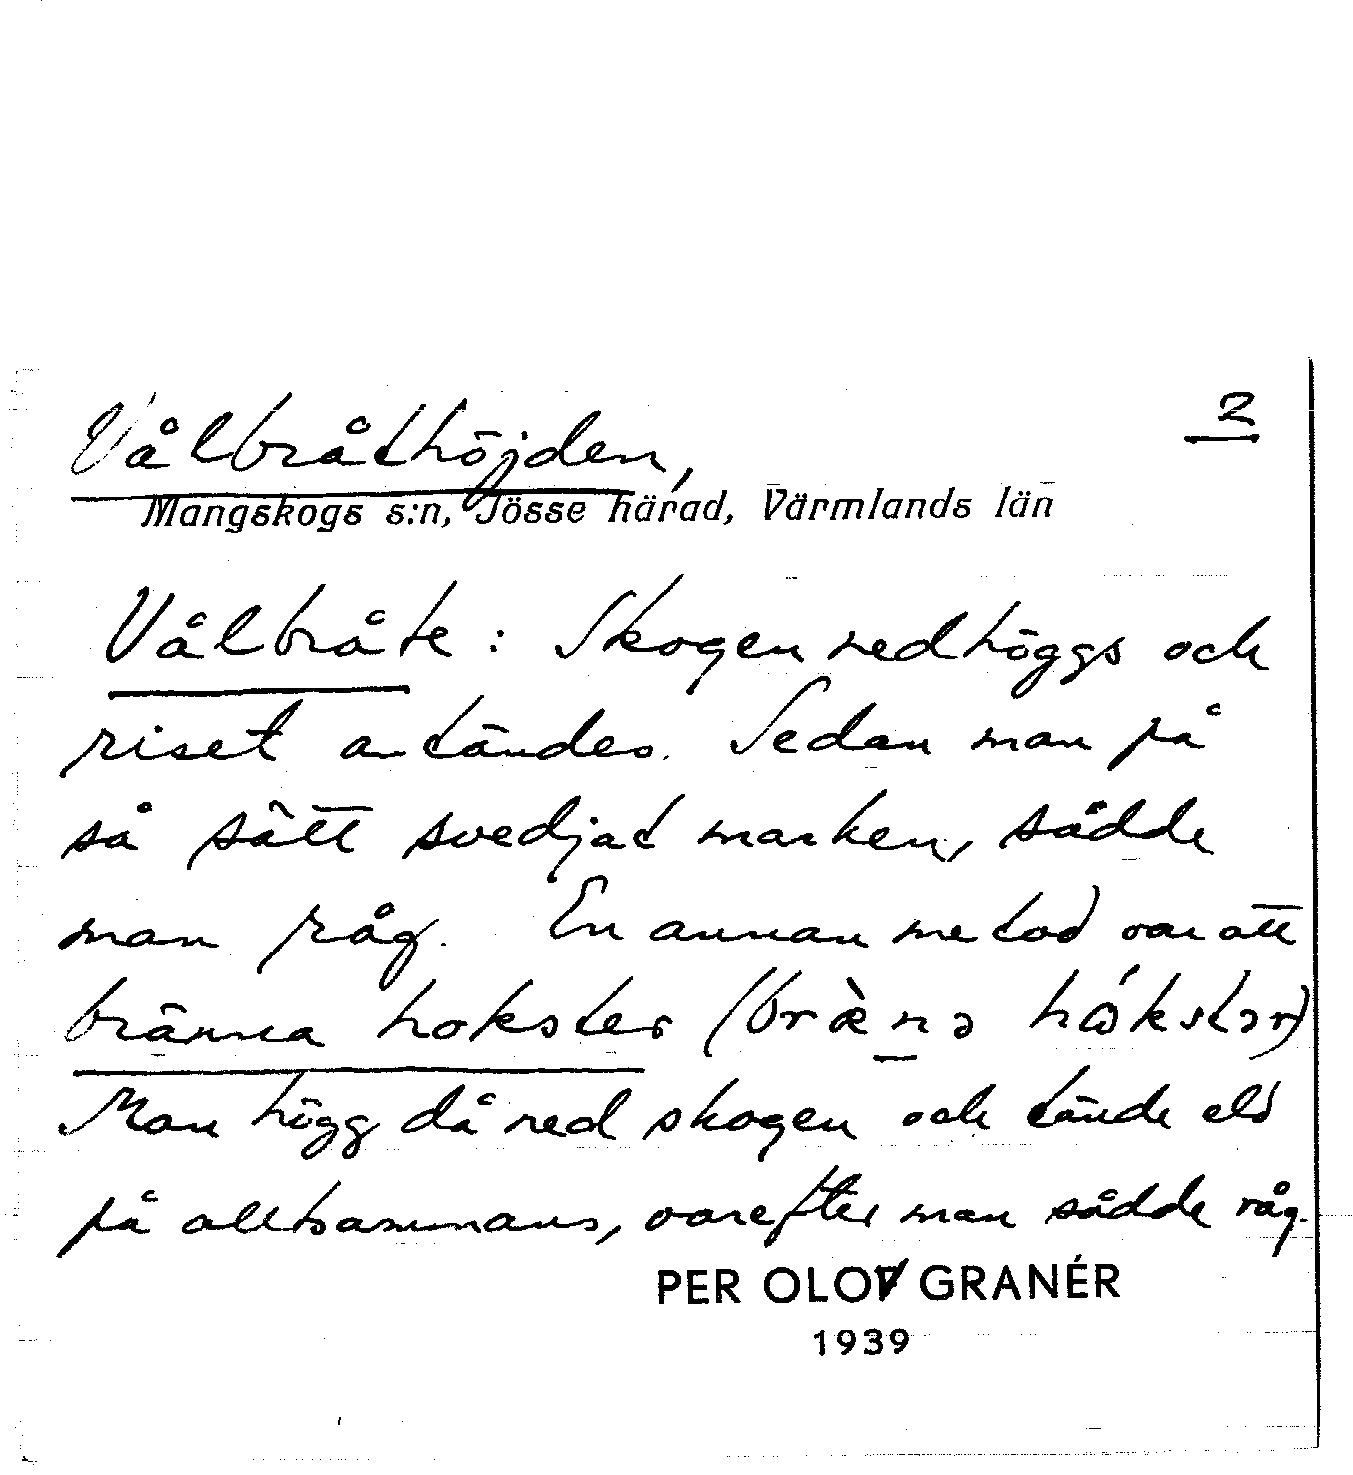 Vålbråthöjden, 2
Mangskogs s:n, Jösse härad, Värmlands län
Vålbråte : Skogen nedhöggs och
riset antändes. Sedan man på
så sätt svedjat marken, sådde
man råg. En annan metod var att
bränna hokster (bræ̀nə hɷ́kstər)
Man högg då ned skogen och tände eld
på alltsammans, varefter man sådde råg.
PER OLOF GRANÉR
1939